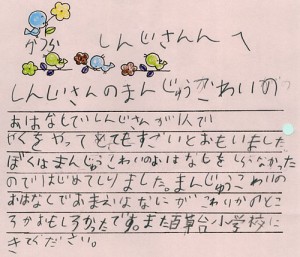 しんじさんん へ
しんじさんのまんじゅうかわいの
おはなしでしんじさんが1人で
やくをやってとてもすごいとおもいました
ぼくはまんじゅうこわいのおはなしをしらなかった
のではじめてしりました。まんじゅうこわいの
おはなしでおまえはなにがこわいかのとこ
ろがおもしろかったです。また百草台小学校に
きてください。